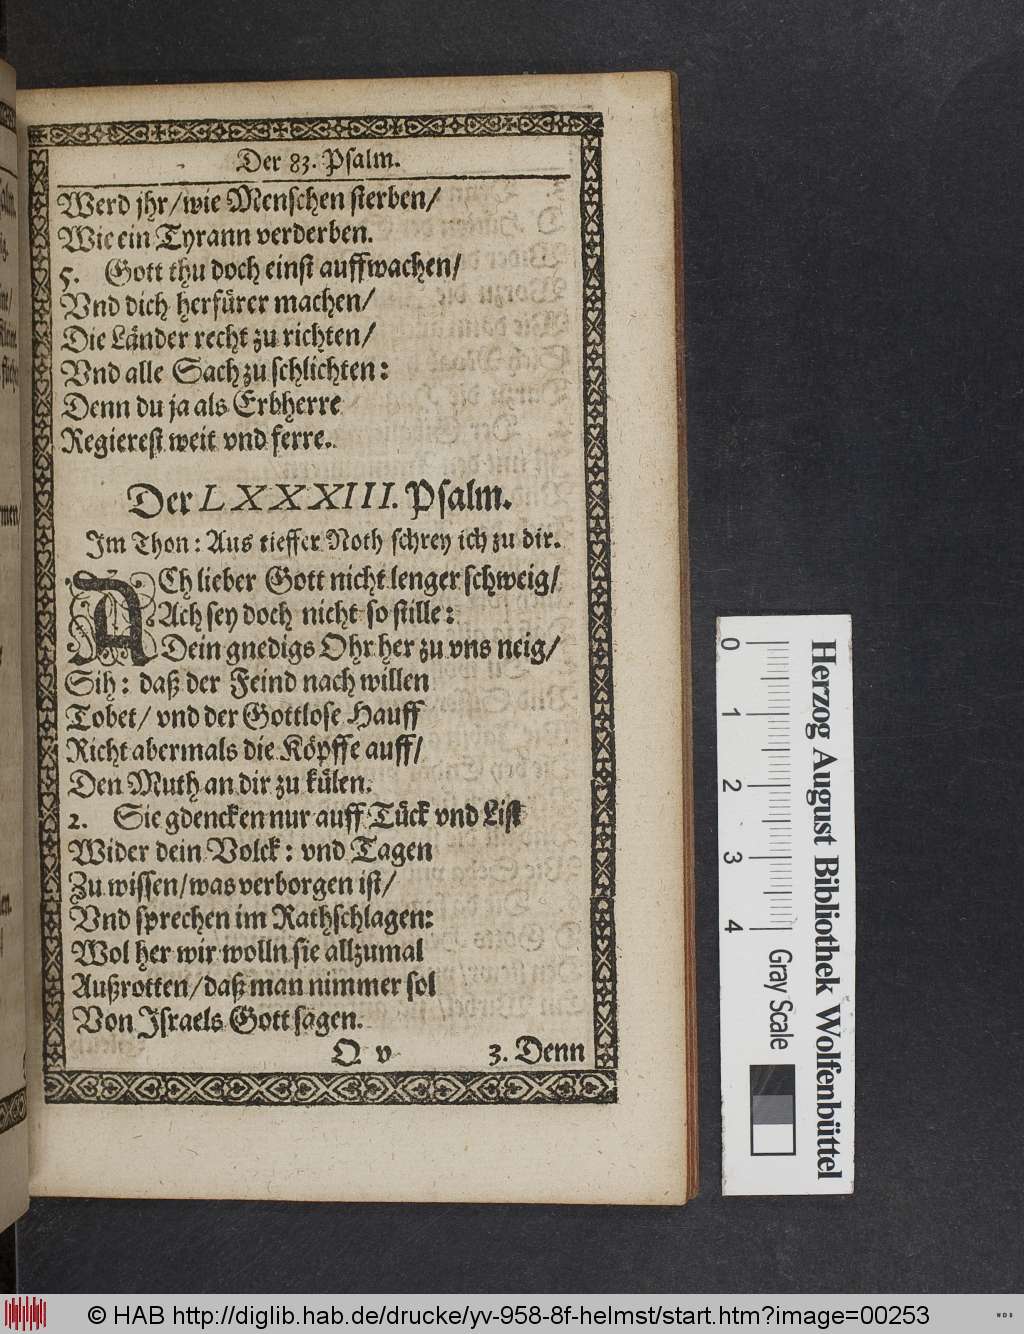 Der 83. Psalm.
Werd jhr/wie Menschen sterben/
Wie ein Tyrann verderben.
5. Gott thu doch einst auffwachen/
Vnd dich herfürer machen/
Die Länder recht zu richten/
Vnd alle Sach zu schlichten:
Denn du ja als Erbherre
Regierest weit vnd ferre.
Der LXXXIII. Psalm.
Im Thon: Aus tieffer Noth schrey ich zu dir.
ACh lieber Gott nicht lenger schweig/
Ach sey doch nicht so stille:
Dein gnedigs Ohr her zu vns neig/
Sih: daß der Feind nach willen
Tobet/ vnd der Gottlose Hauff
Richt abermals die Köpffe auff/
Den Muth an dir zu külen.
2. Sie gdencken nur auff Tück vnd List
Wider dein Volck: vnd Tagen
Zu wissen/was verborgen ist/
Vnd sprechen im Rathschlagen:
Wol her wir wolln sie allzumal
Außrotten/daß man nimmer sol
Von Israels Gott sagen.
Q v 3. Denn
0 1 2 3 4 Gray Scale
Herzog August Bibliothek Wolfenbüttel
© HAB http://diglib.hab.de/drucke/yv-958-8f-helmst/start.htm?image=00253